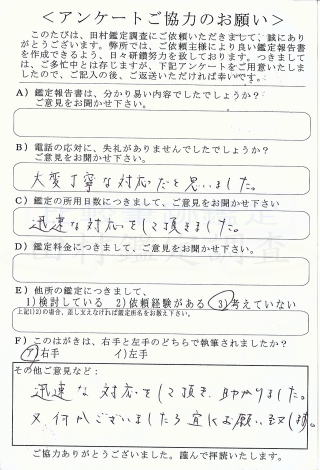 ＜アンケートご協力のお願い＞
このたびは、田村鑑定調査にご依頼いただきまして、誠にあり
がとうございます。弊所では、ご依頼主様により良い鑑定報告書
を作成できるよう、日々研鑽努力を致しております。つきまして
は、ご多忙中とは存じますが、下記アンケートをご用意いたしま
したので、ご記入の後、ご返送いただければ幸いです。
A）鑑定報告書は、分かり易い内容でしたでしょうか？
ご意見をお聞かせ下さい。
B）電話の応対に、失礼がありませんでしたでしょうか？
ご意見をお聞かせ下さい。
大変丁寧な対応だと思いました。
C）鑑定の所用日数につきまして、ご意見をお聞かせ下さい
迅速な対応をして頂きました。
D）鑑定料金につきまして、ご意見をお聞かせ下さい。
E）他所の鑑定につきまして、
1）検討している 2）依頼経験がある 3）考えていない
上記1）2）の場合、差し支えなければ鑑定所名をお教え下さい。
F）このはがきは、右手と左手のどちらで執筆されましたか？
ア）右手 イ）左手
その他ご意見など：
迅速な対応をして頂き、助かりました。
又何かございましたら宜しくお願い致します。
ご協力ありがとうございました。謹んで拝読いたします。